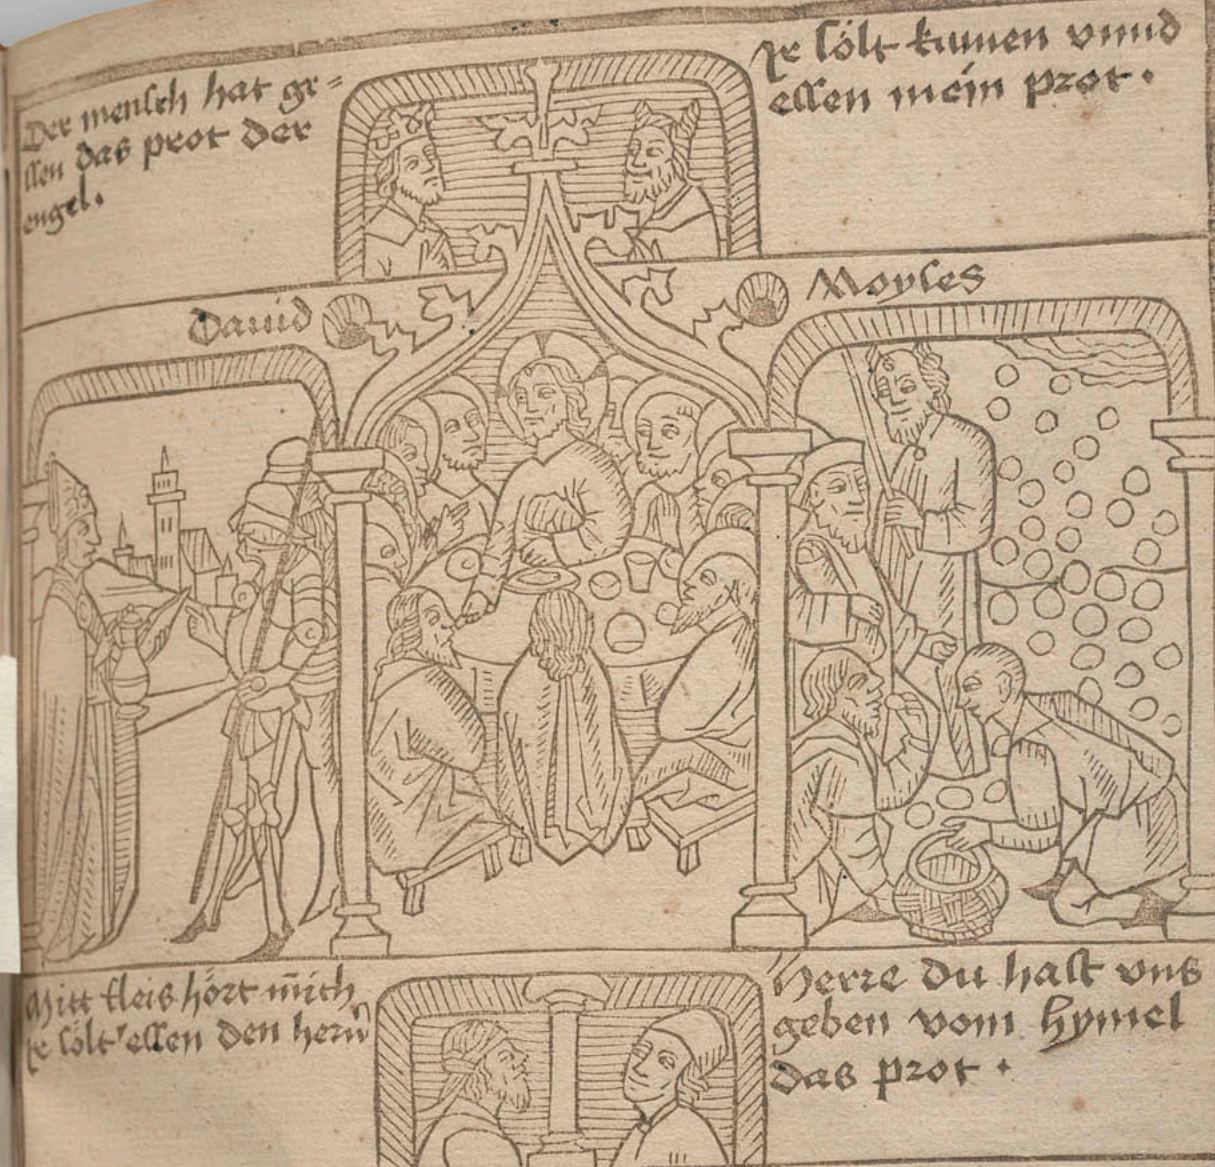 Der mensch hat ge=
ssen das prot der
engel.
Ir sölt kumen vnnd
essen mein prot.
Dauid
Moyses
Mitt fleis hört mich
ir sölt essen den herñ
Herre du hast vns
geben vom hymel
das prot.